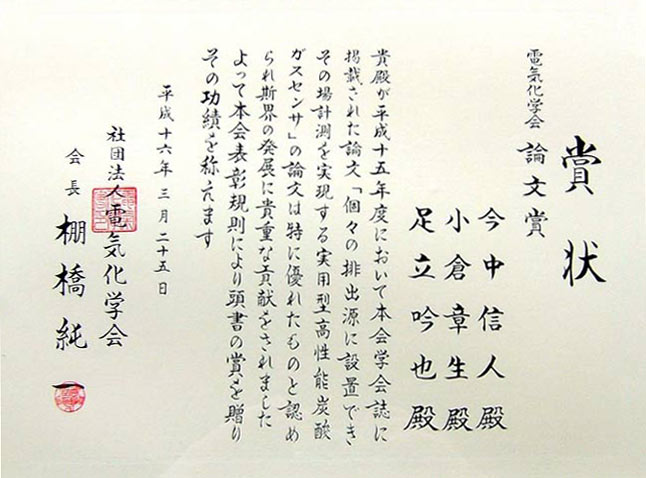 賞状
電気化学会 論文賞
今中信人殿
小倉章生殿
足立吟也殿
貴殿が平成十五年度において本会学会誌に
掲載された論文「個々の排出源に設置でき
その場計測を実現する実用型高性能炭酸
ガスセンサ」の論文は特に優れたものと認め
られ斯界の発展に貴重な貢献をされました
よって本会表彰規則により頭書の賞を贈り
その功績を称えます
平成十六年三月二十五日
社団法人電気化学会
会長 棚橋純一